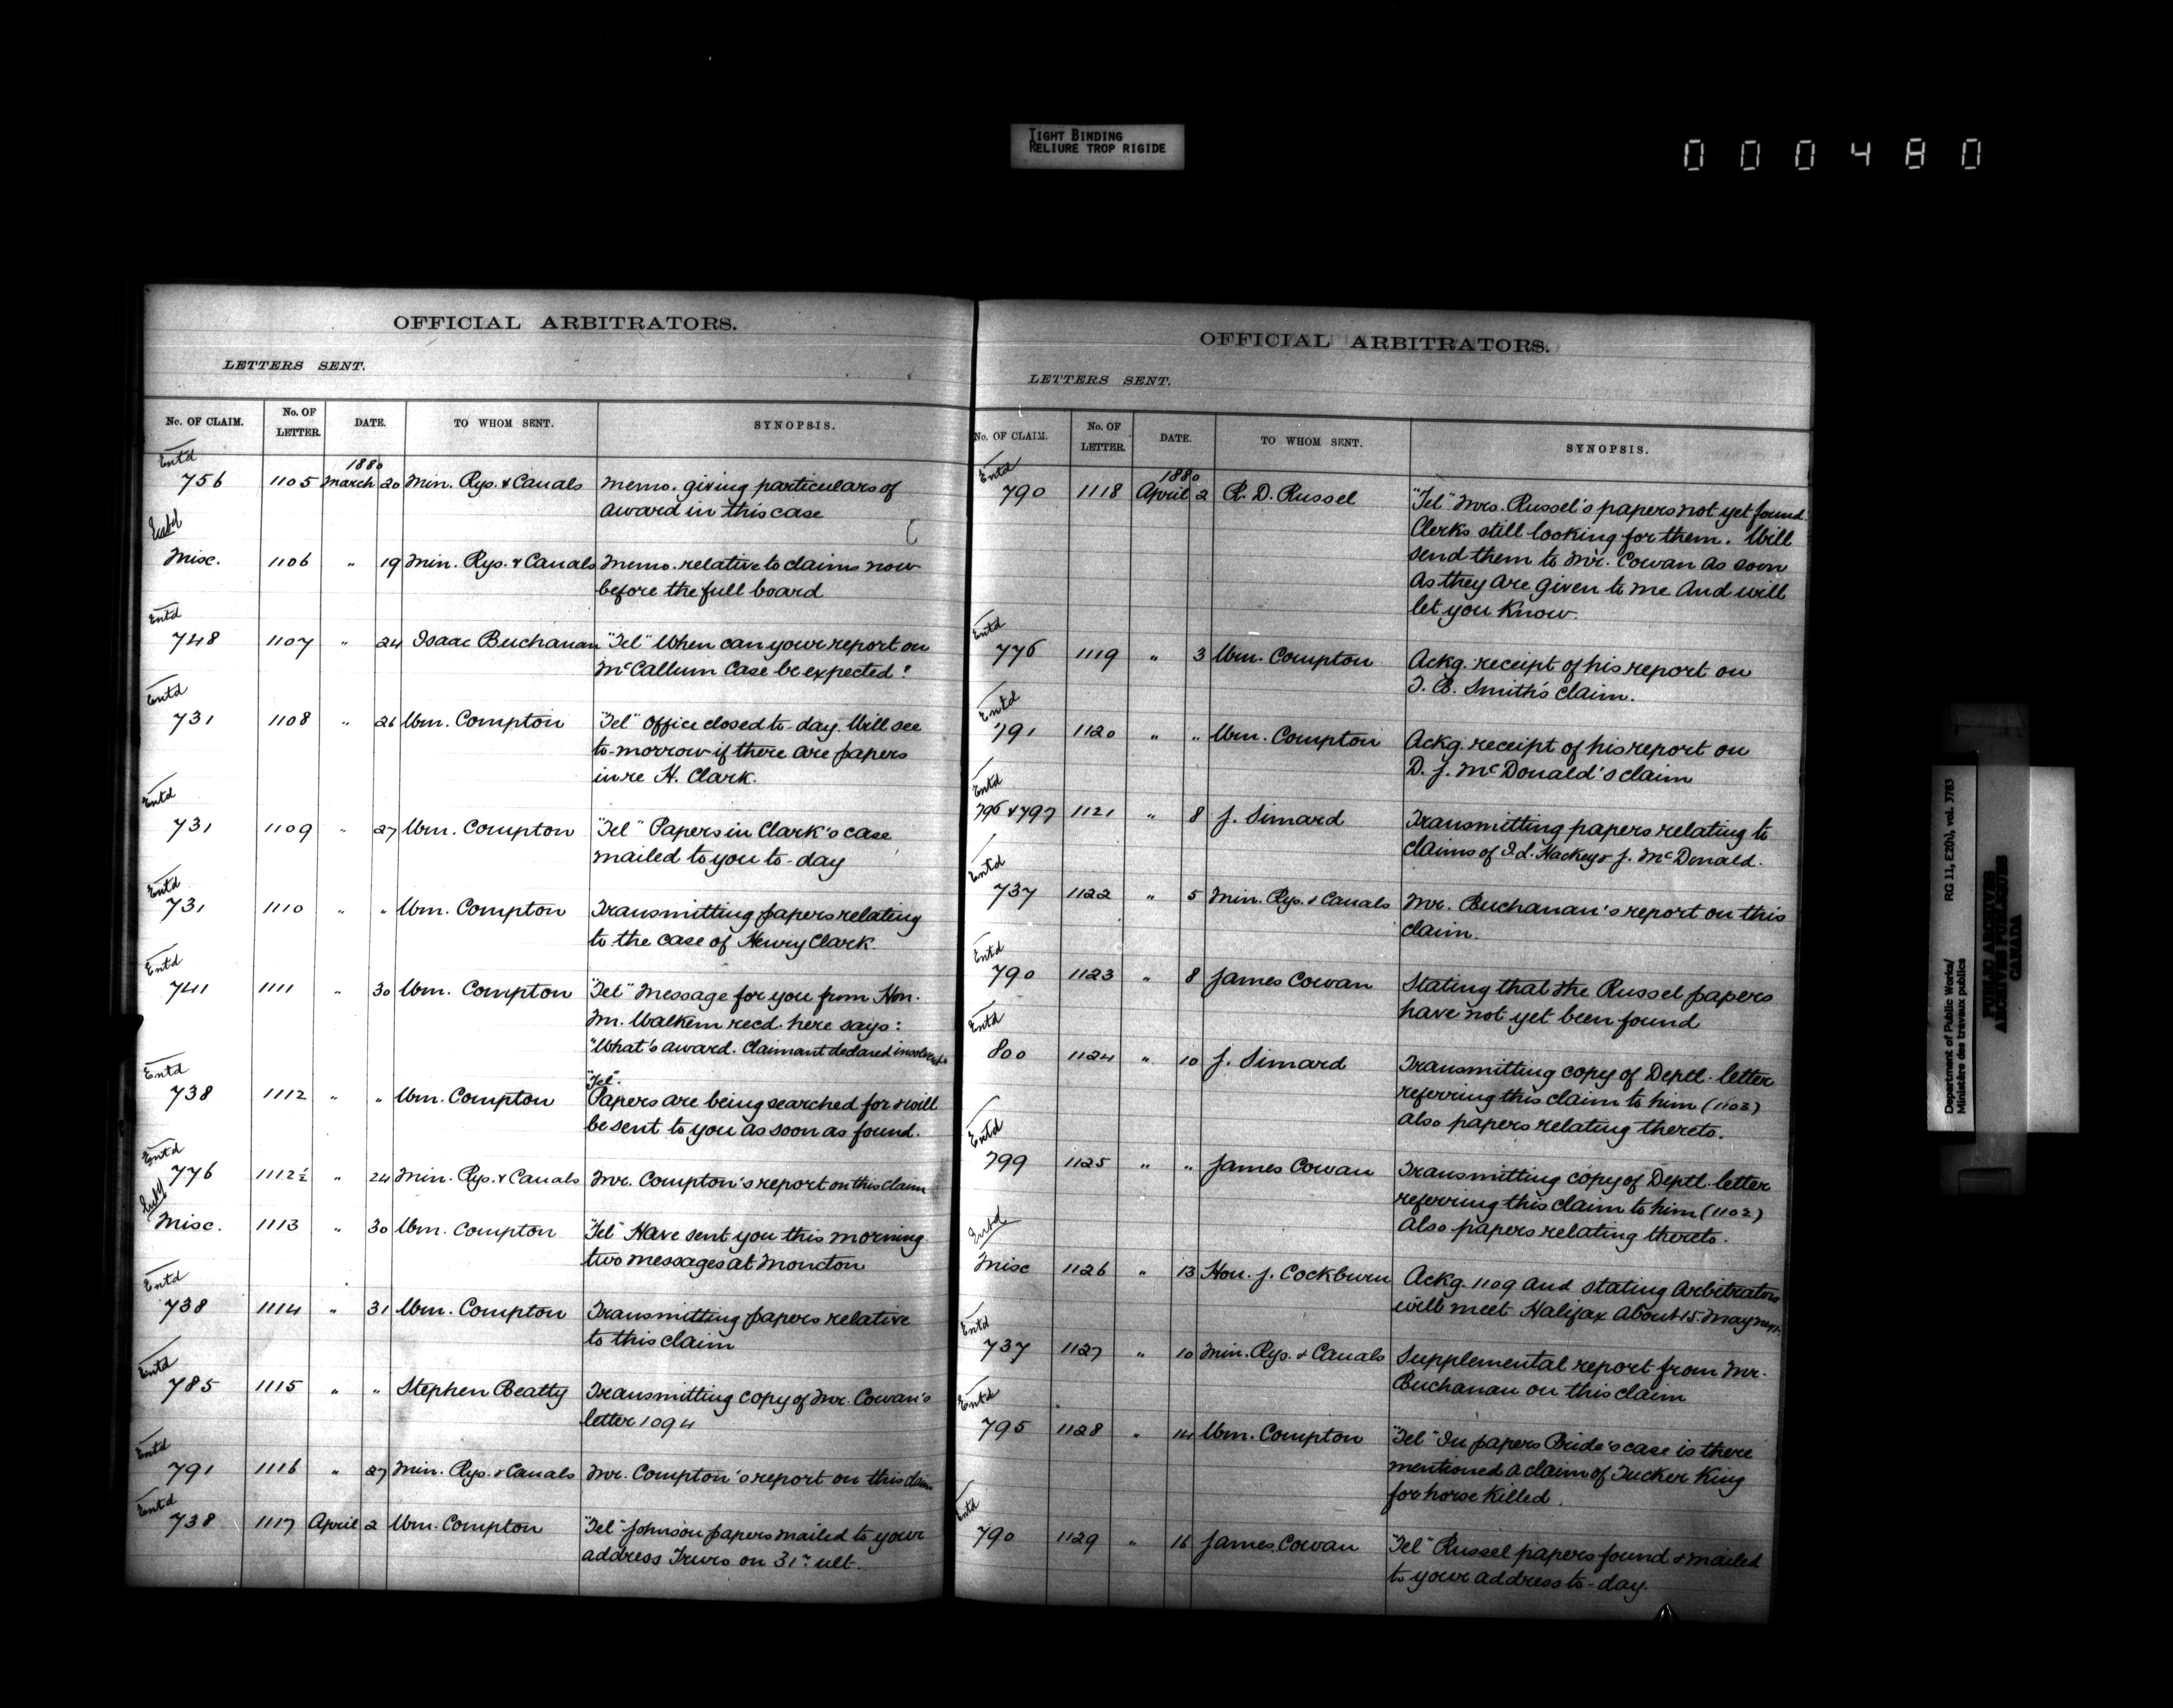 TIGHT BINDING
RELIURE TROP RIGIDE
000480
OFFICIAL ARBITRATORS.
LETTERS SENT.
No. OF CLAIM. No. OF LETTER. DATE. TO WHOM SENT. SYNOPSIS.
Entd
1880
756 1105 March 20 Min. Rys. & Canals Memo. giving particulars of
award in this case
Entd
Misc. 1106 " 19 Min. Rys. & Canals Memo. relative to claims now
before the full board
Entd
748 1107 " 24 Isaac Buchanan "Tel" When can your report on
McCallum Case be expected?
Entd
731 1108 " 26 Wm. Compton "Tel" Office closed to-day. Will see
to-morrow if there are papers
in re H. Clark.
Entd
731 1109 " 27 Wm. Compton "Tel" Papers in Clark's case
mailed to you to-day
Entd
731 1110 " " Wm. Compton Transmitting papers relating
to the case of Henry Clark.
Entd
741 1111 " 30 Wm. Compton "Tel" Message for you from Hon.
Mr. Walkem recd. here says:
"What's award. Claimant declared insolvent"
Entd
"Tel".
738 1112 " " Wm. Compton Papers are being searched for & will
be sent to you as soon as found.
Entd
776 1112½ " 24 Min. Rys. & Canals Mr. Compton's report on this claim
Entd
Misc. 1113 " 30 Wm. Compton "Tel" Have sent you this morning
two messages at Moncton
Entd
738 1114 " 31 Wm. Compton Transmitting papers relative
to this claim
Entd
785 1115 " " Stephen Beatty Transmitting copy of Mr. Cowan's
letter 1094
Entd
791 1116 " 27 Min. Rys. & Canals Mr. Compton's report on this claim
Entd
738 1117 April 2 Wm. Compton "Tel" Johnson papers mailed to your
address Truro on 31st ult.
OFFICIAL ARBITRATORS.
LETTERS SENT.
No. OF CLAIM. No. OF LETTER. DATE. TO WHOM SENT. SYNOPSIS.
Entd
1880
790 1118 April 2 R. D. Russel "Tel" Mrs. Russel's papers not yet found.
Clerks still looking for them. Will
send them to Mr. Cowan as soon
as they are given to me and will
let you know.
Entd
776 1119 " 3 Wm. Compton Ackg. receipt of his report on
T. B. Smith's claim.
Entd
791 1120 " " Wm. Compton Ackg. receipt of his report on
D. J. McDonald's claim
Entd
796 & 797 1121 " 8 J. Simard Transmitting papers relating to
claims of Id. Hackey & J. McDonald.
Entd
737 1122 " 5 Min. Rys. & Canals Mr. Buchanan's report on this
claim.
Entd
790 1123 " 8 James Cowan Stating that the Russel papers
have not yet been found
Entd
800 1124 " 10 J. Simard Transmitting copy of Deptl. letter
referring this claim to him (1103)
also papers relating thereto.
Entd
799 1125 " " James Cowan Transmitting copy of Deptl. letter
referring this claim to him (1102)
Also papers relating thereto.
Entd
Misc 1126 " 13 Hon. J. Cockburn Ackg. 1109 and stating Arbitrators
will meet Halifax about 15. May next.
Entd
737 1127 " 10 Min. Rys. & Canals Supplemental report from Mr.
Buchanan on this claim
Entd
795 1128 " 14 Wm. Compton "Tel" In papers Bride's case is there
mentioned a claim of Tucker King
for horse killed.
Entd
790 1129 " 16 James Cowan "Tel" Russel papers found & mailed
to your address to-day.
Department of Public Works/ RG 11, E20(b), vol. 3783
Ministère des travaux publics
PUBLIC ARCHIVES
ARCHIVES PUBLIQUES
CANADA